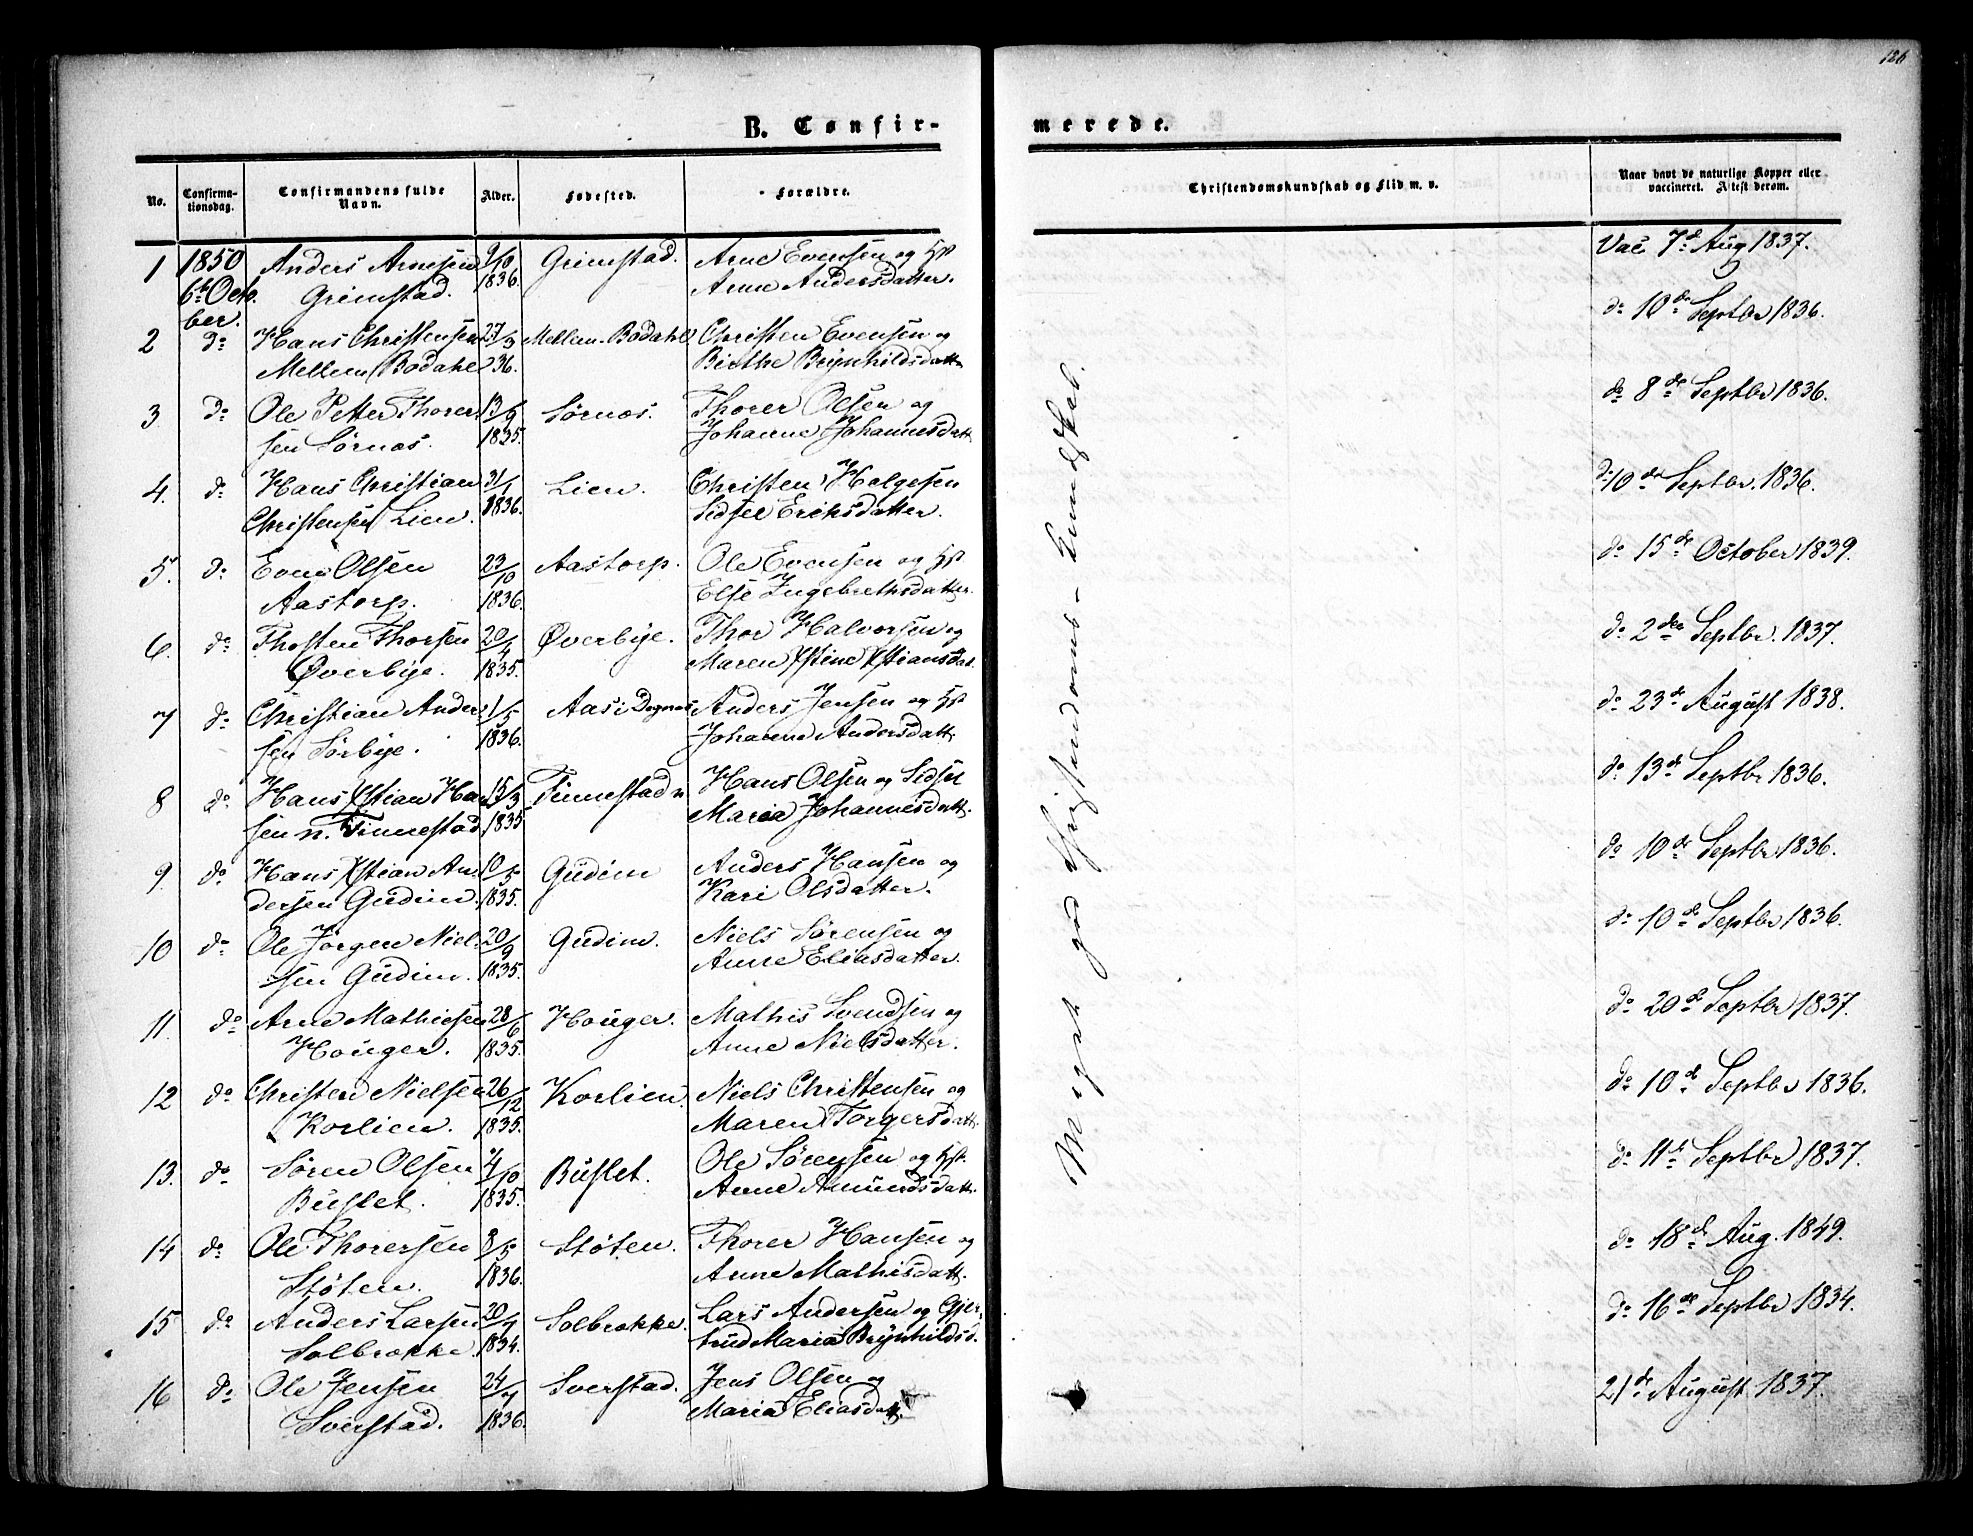 126
B. Confir-
merede.
No.
Confirma-
tionsdag.
Confirmandens fulde
Navn.
Alder.
Fødested.
Forældre.
Christendomskundskab og Flid m. v.
Naar havt de naturlige Kopper eller
vaccineret. Attest derom.
1 1850 Anders Arnesen 9/10 Grimstad. Arne Evensen og Hst
6te Octo- Grimstad. 1836. Anne Andersdatter.
ber.
Vac 7d Aug 1837.
2 do Hans Christensen 27/3 Mellem-Bodahl Christen Evensen og
Mellem Bodahl 36. Birthe Brynhildsdatt
do 10de Septbr 1836.
3 do Ole Petter Thorer- 13/9 Sørnæs. Thorer Olsen og
sen Sørnæs. 1835. Johanne Johannesdatt
do 8de Septbr 1836.
4. do Hans Christian 31/1 Lien. Christen Holgesen
Christensen Lien. 1836. Sidsel Eriksdatter.
do 10de Septbr. 1836.
5. do Even Olsen 23/10 Aastorp. Ole Evensen og Hst
Aastorp. 1836. Else Ingebrethsdatter.
do 15de October 1839.
6. do Thosten Thorsen 20/4 Øverbye. Thor Halvorsen og
Øverbye. 1835. Maren Xstine Xstiansdat.
do 2den Septbr. 1837.
7 do Christian Ander- 1/5 Aas i Degnes Anders Jensen og Hst
sen Sørbye. 1836. Johanne Andersdatt.
do 23de August 1838.
8 do Hans Xstian Han- 15/3 Finnestad n Hans Olsen og Sidsel
sen n. Finnestad 1835 Maria Johannesdatt.
do 13de Septbr 1836.
9. do Hans Xstian An- 10/5 Gudim Anders Hansen og
dersen Gudim. 1835. Kari Olsdatter.
do 10de Septbr 1836.
10 do Ole Jørgen Niel- 20/9 Gudim. Niels Sørensen og
sen Gudim. 1835. Anne Eliasdatter.
do 10de Septbr 1836.
11. do Arne Mathiesen 28/6 Houger. Mathis Svendsen og
Houger. 1835. Anne Nielsdatter.
do 20de Septbr 1837.
12 do Christen Nielsen 26/12 Korlien. Niels Christensen og
Korlien. 1835. Maren Torgersdatt.
do 10de Septbr 1836.
13. do Søren Olsen 4/10 Buslet. Ole Sørensen og Hst.
Buslet. 1835. Anne Amundsdatt.
do 11te Septbr 1837.
14 do Ole Thorersen 8/5 Støten. Thorer Hansen og
Støten. 1836. Anne Mathisdatt.
do 18de Aug. 1849.
15 do Anders Larsen 20/7 Solbrække. Lars Andersen og Gjer-
Solbrække. 1834. trud Maria Brynhildsd.
do 16de Septbr 1834.
16 do Ole Jensen 24/7 Sverstad. Jens Olsen og
Sverstad. 1836. Maria Eliasdatt.
21de August 1837.
Meget god Christendoms-Kundskab.